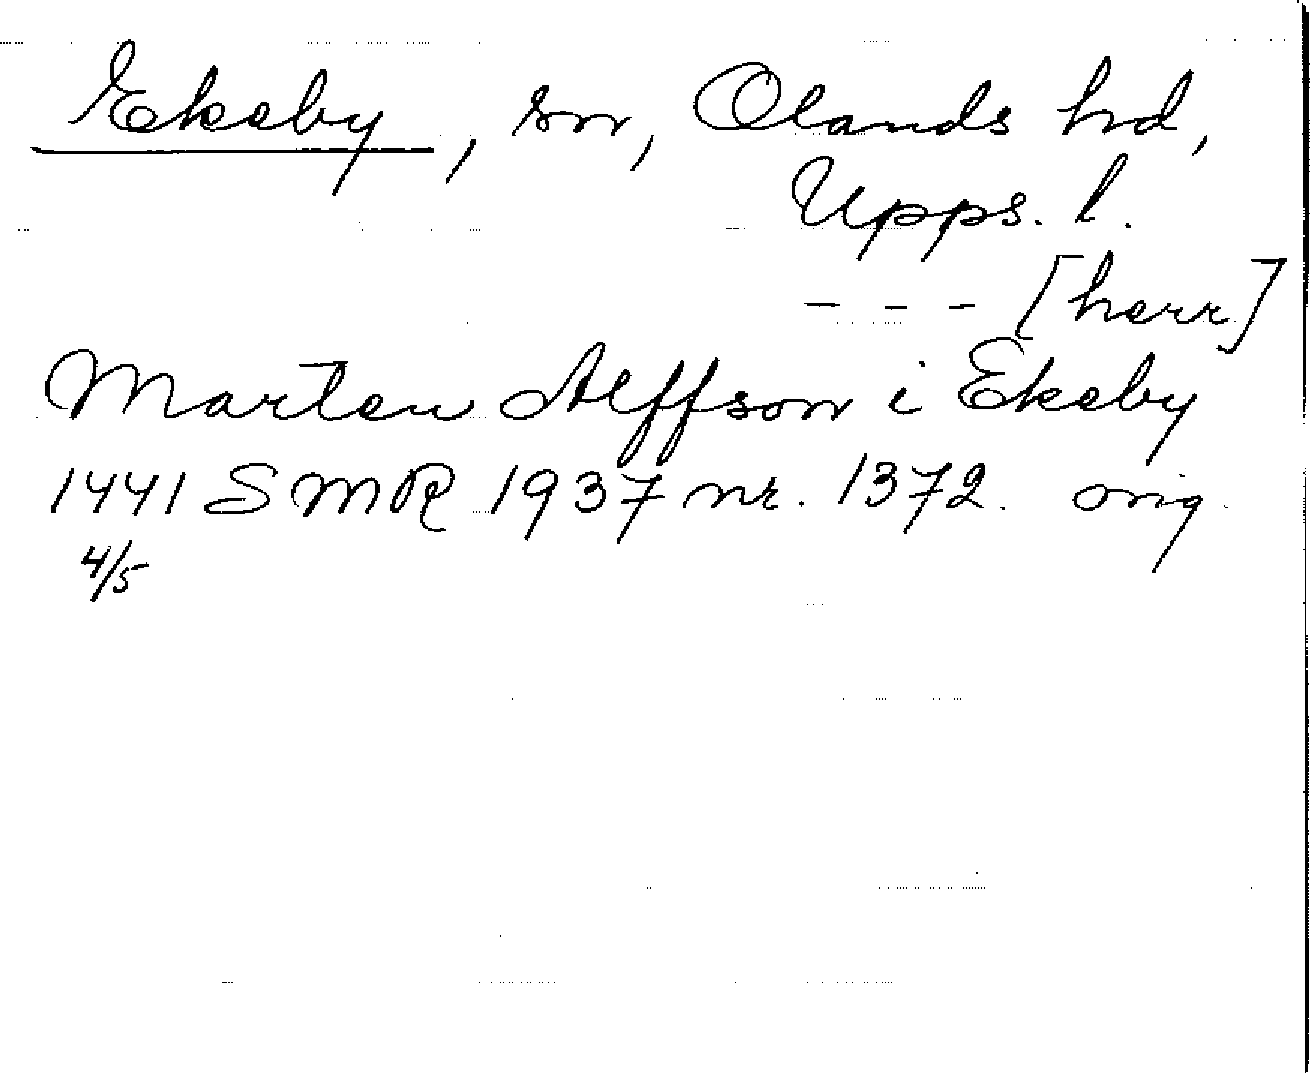 Ekeby, sn, Olands hd,
Upps. l.
- - - [herr]
Marten Aleffson i Ekeby
1441 SMR 1937 nr. 1372. orig.
4/5